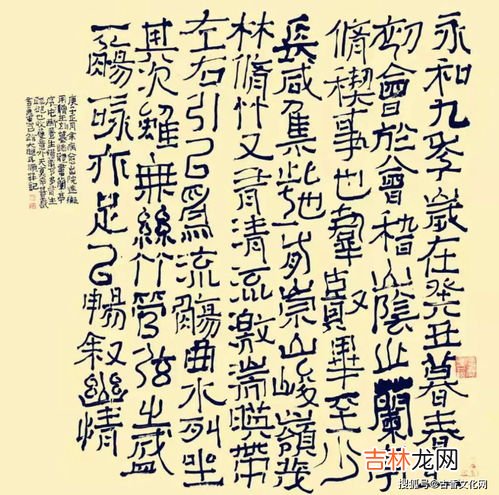 永和九年歲在癸丑暮春
初會於會稽山陰之蘭亭
脩稧事也羣賢畢至少
長咸集此地有崇山峻嶺茂
林脩竹又有清流激湍暎帶
左右引以為流觴曲水列坐
其次雖無絲竹管弦之盛
一觴一詠亦足以暢敘幽情
庚子正月余病愈出院
吉林龙网
搜狐号@古音文化网